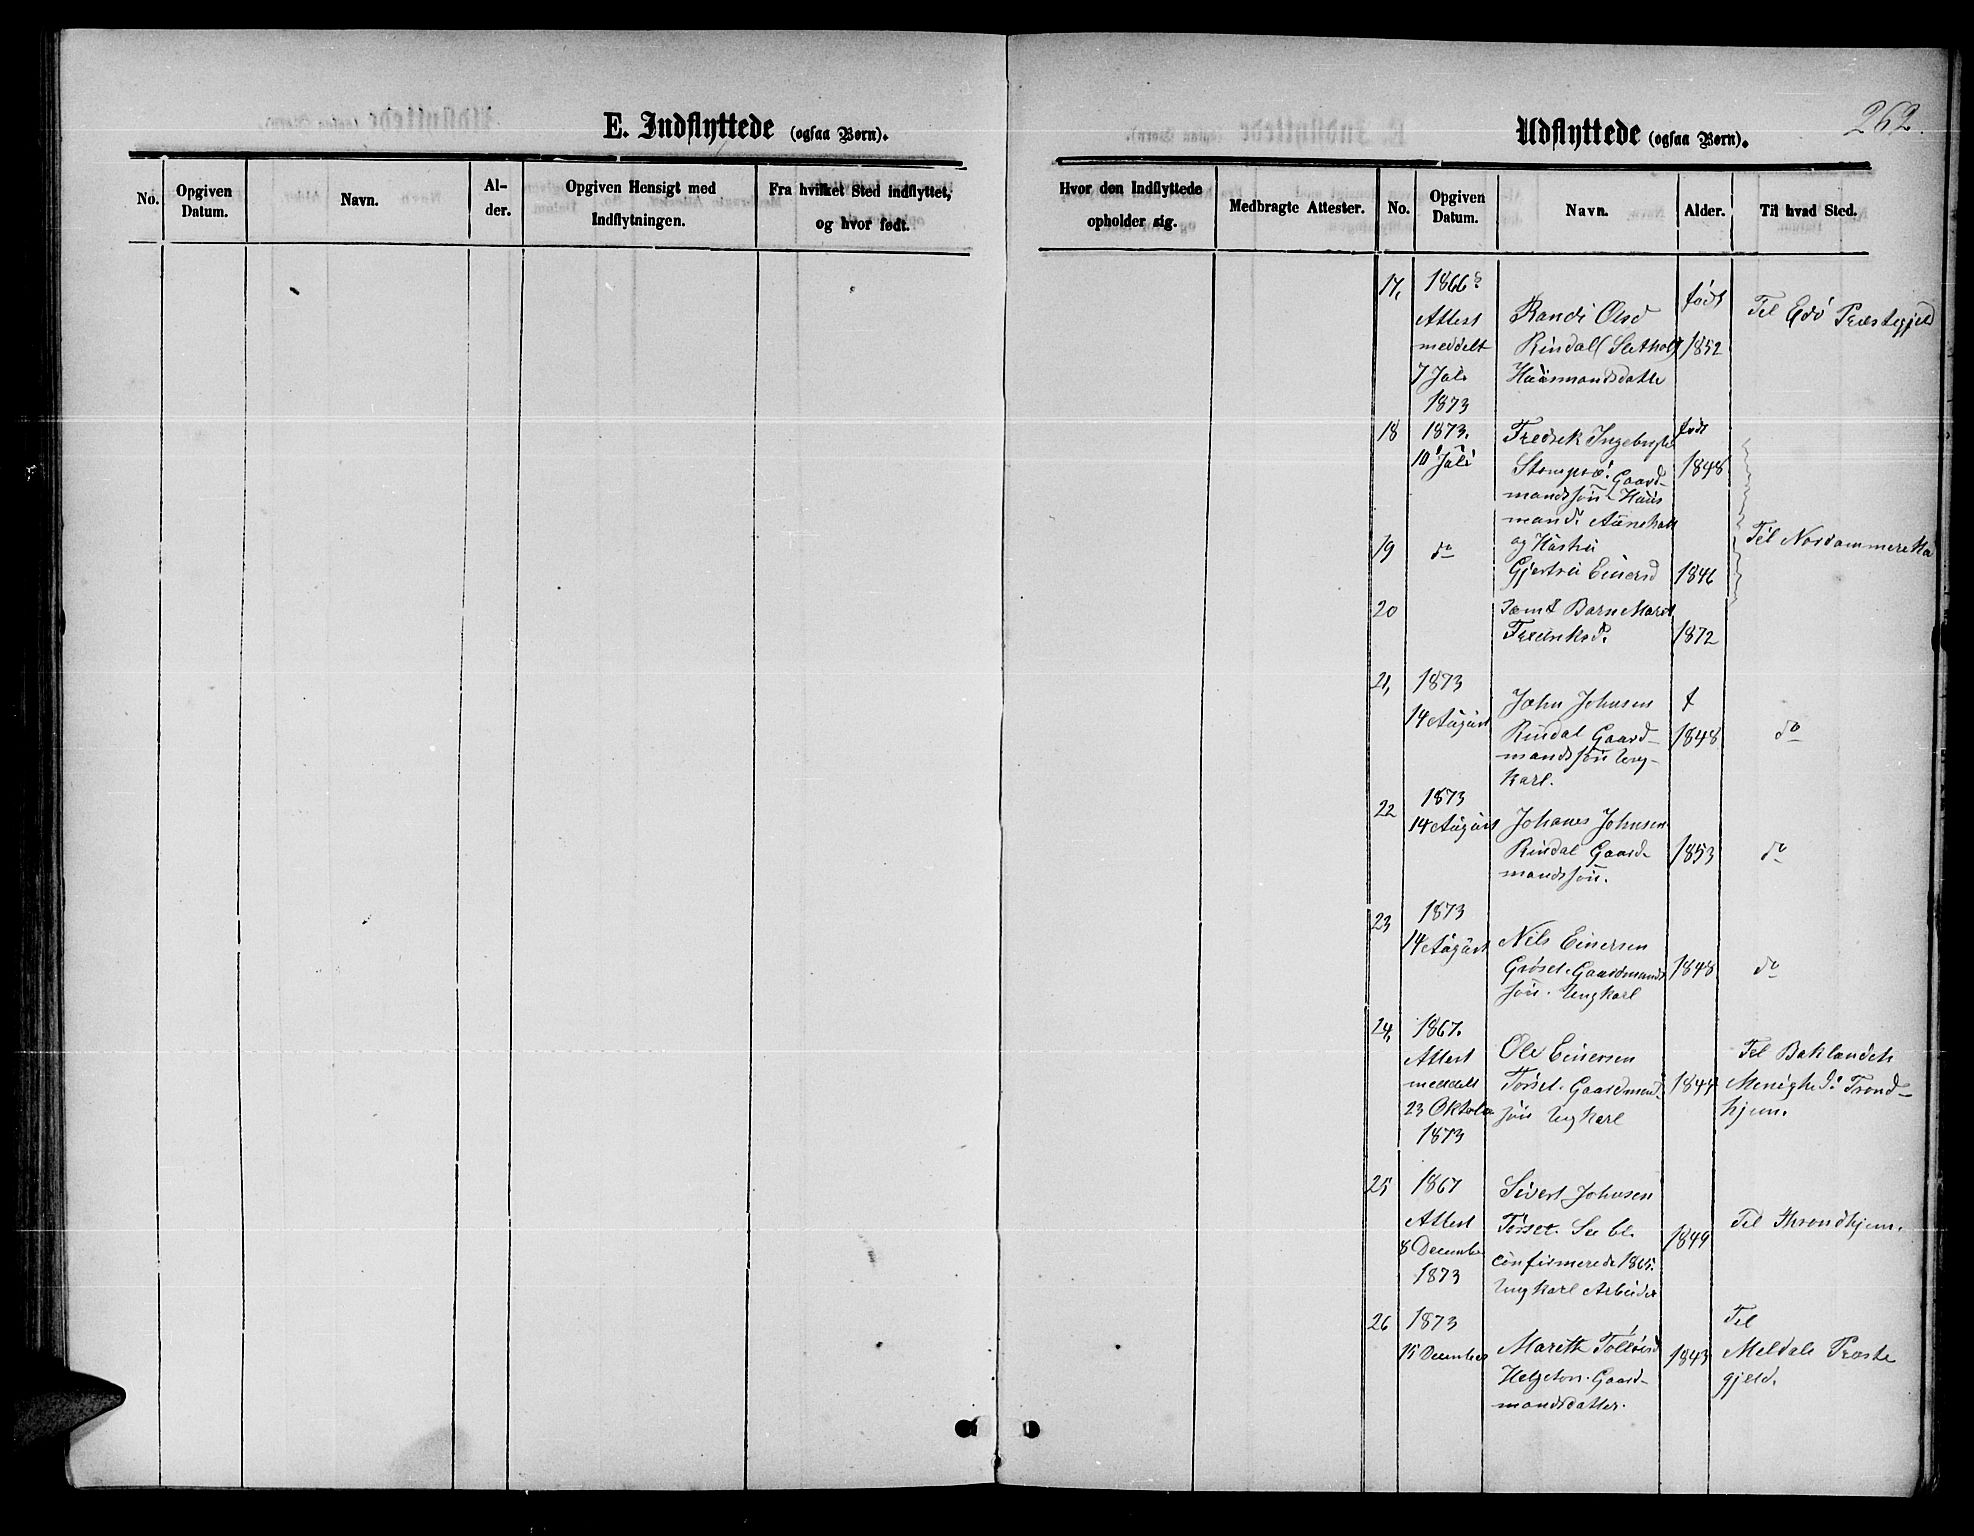 262.
E. Indflyttede (ogsaa Børn).
No.
Opgiven
Datum.
Navn.
Al-
der.
Opgiven Hensigt med
Indflytningen.
Fra hvilket Sted indflyttet,
og hvor født.
Udflyttede (ogsaa Børn).
Hvor den Indflyttede
opholder sig.
Medbragte Attester.
No.
Opgiven
Datum.
Navn.
Alder.
Til hvad Sted.
17,
1866
Attest
meddelt
7 Juli
1873
Randi Olsd
Rindal
Huusmandsdatte
født
1852
Til Edø Præstegjeld
18
1873.
10 Juli
Fredrik
Gaard-
mandssøn Huus
mand.
født
1848
19
do
og Hustru
Gjertru Einersd
1846
Til Nordammerekka
20
samt Barn Marit
1872
21,
1873
14 August
John Johnsen
Rindal Gaard-
mandssøn Ung-
karl.
f
1848
do
22
1873
14 August
Johanes Johnsen
Rindal Gaard-
mandssøn.
1853
do
23
1873
14 August
Nils Einersen
Grøset. Gaardmands
søn. Ungkarl
1848
do
24,
1867.
Attest
meddelt
23 Oktober
1873
Ole Einersen
Tørset. Gaardmand
søn Ungkarl
1847
Til Baklandets
Menighed i Trond-
hjem.
25
1867
Attest
8 December
1873
Sivert Johnsen
Tørset. See bl.
confirmerede 1865.
Ungkarl Arbeider
1849
Til Throndhjem.
26
1873
15 December
Mareth
Helgeton. Gaard-
mandsdatter.
1843
Til
Meldals Præste
gjeld.